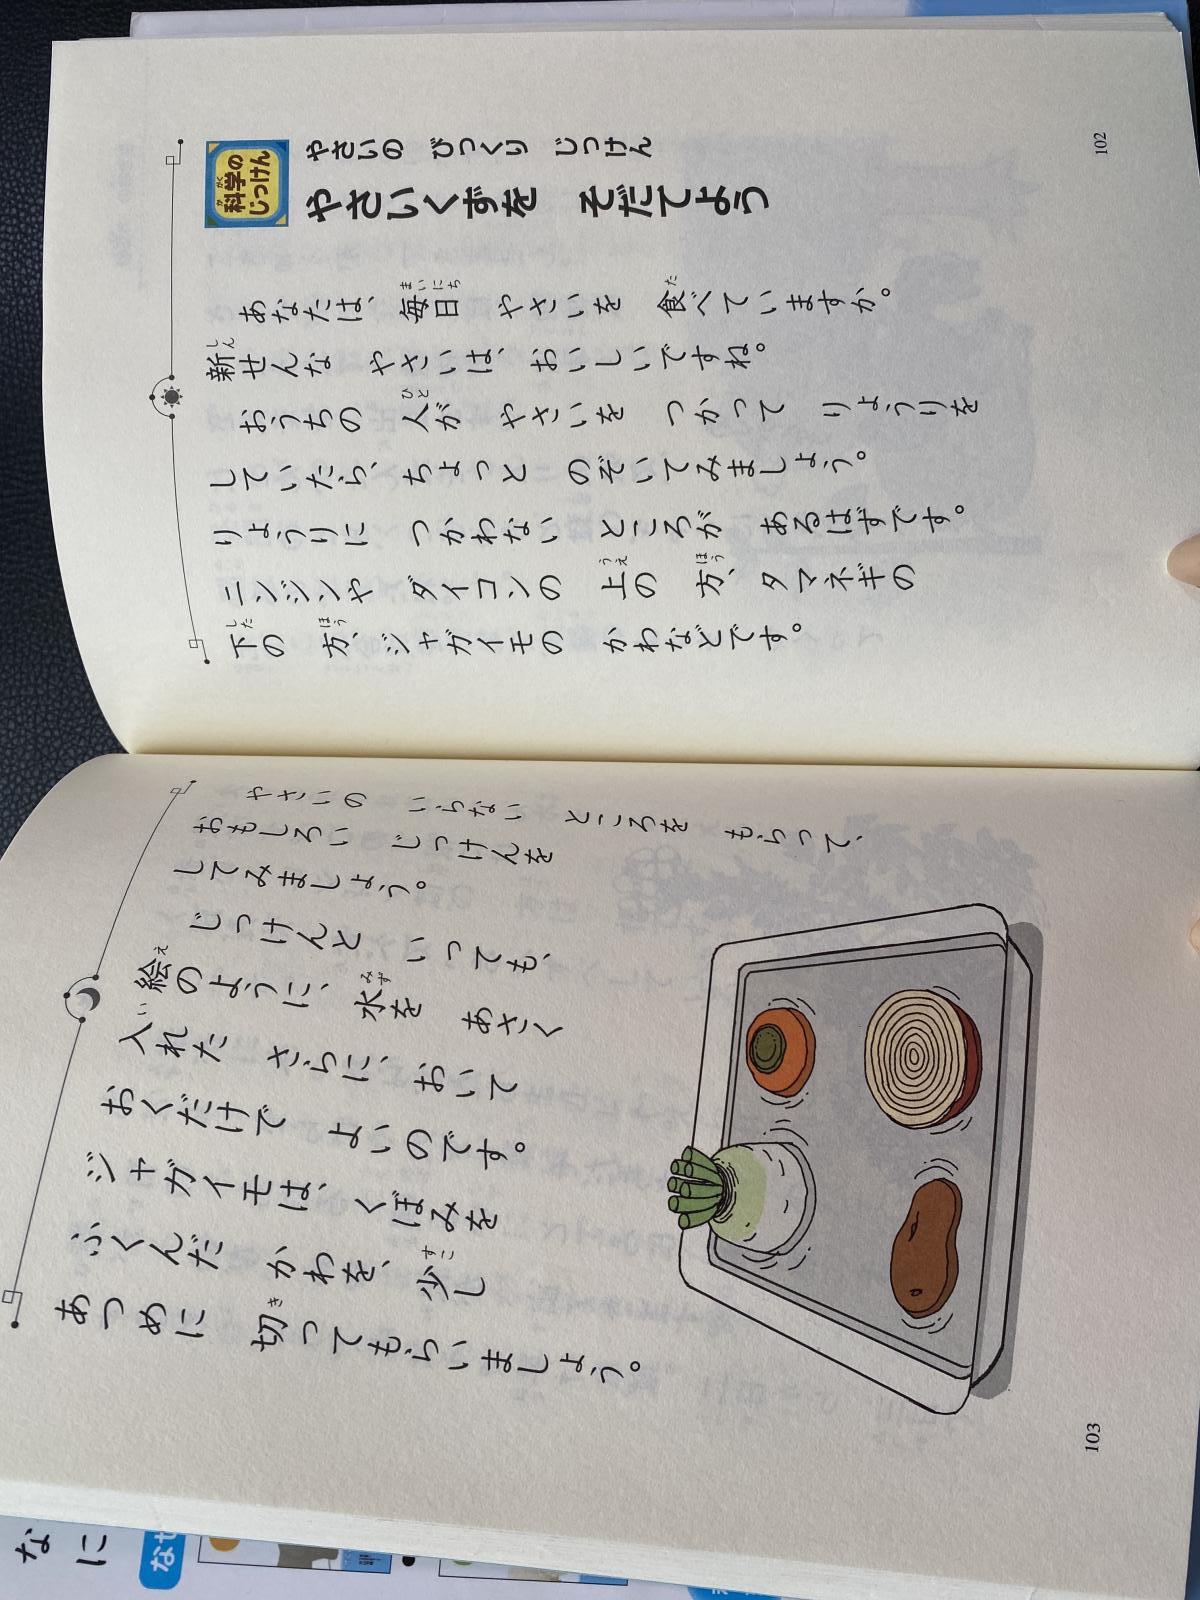 科学の
じっけん
やさいの びっくり じっけん
やさいくずを そだてよう
あなたは、毎日 やさいを 食べていますか。
新せんな やさいは、おいしいですね。
おうちの 人が やさいを つかって りょうりを
していたら、ちょっと のぞいてみましょう。
りょうりに つかわない ところが あるはずです。
ニンジンや ダイコンの 上の 方、タマネギの
下の 方、ジャガイモの かわなどです。
102
やさいの いらない ところを もらって、
おもしろい じっけんを
してみましょう。
じっけんと いっても、
絵のように、水を あさく
入れた さらに、おいて
おくだけで よいのです。
ジャガイモは、くぼみを
ふくんだ かわを、少し
あつめに 切ってもらいましょう。
103
な
に